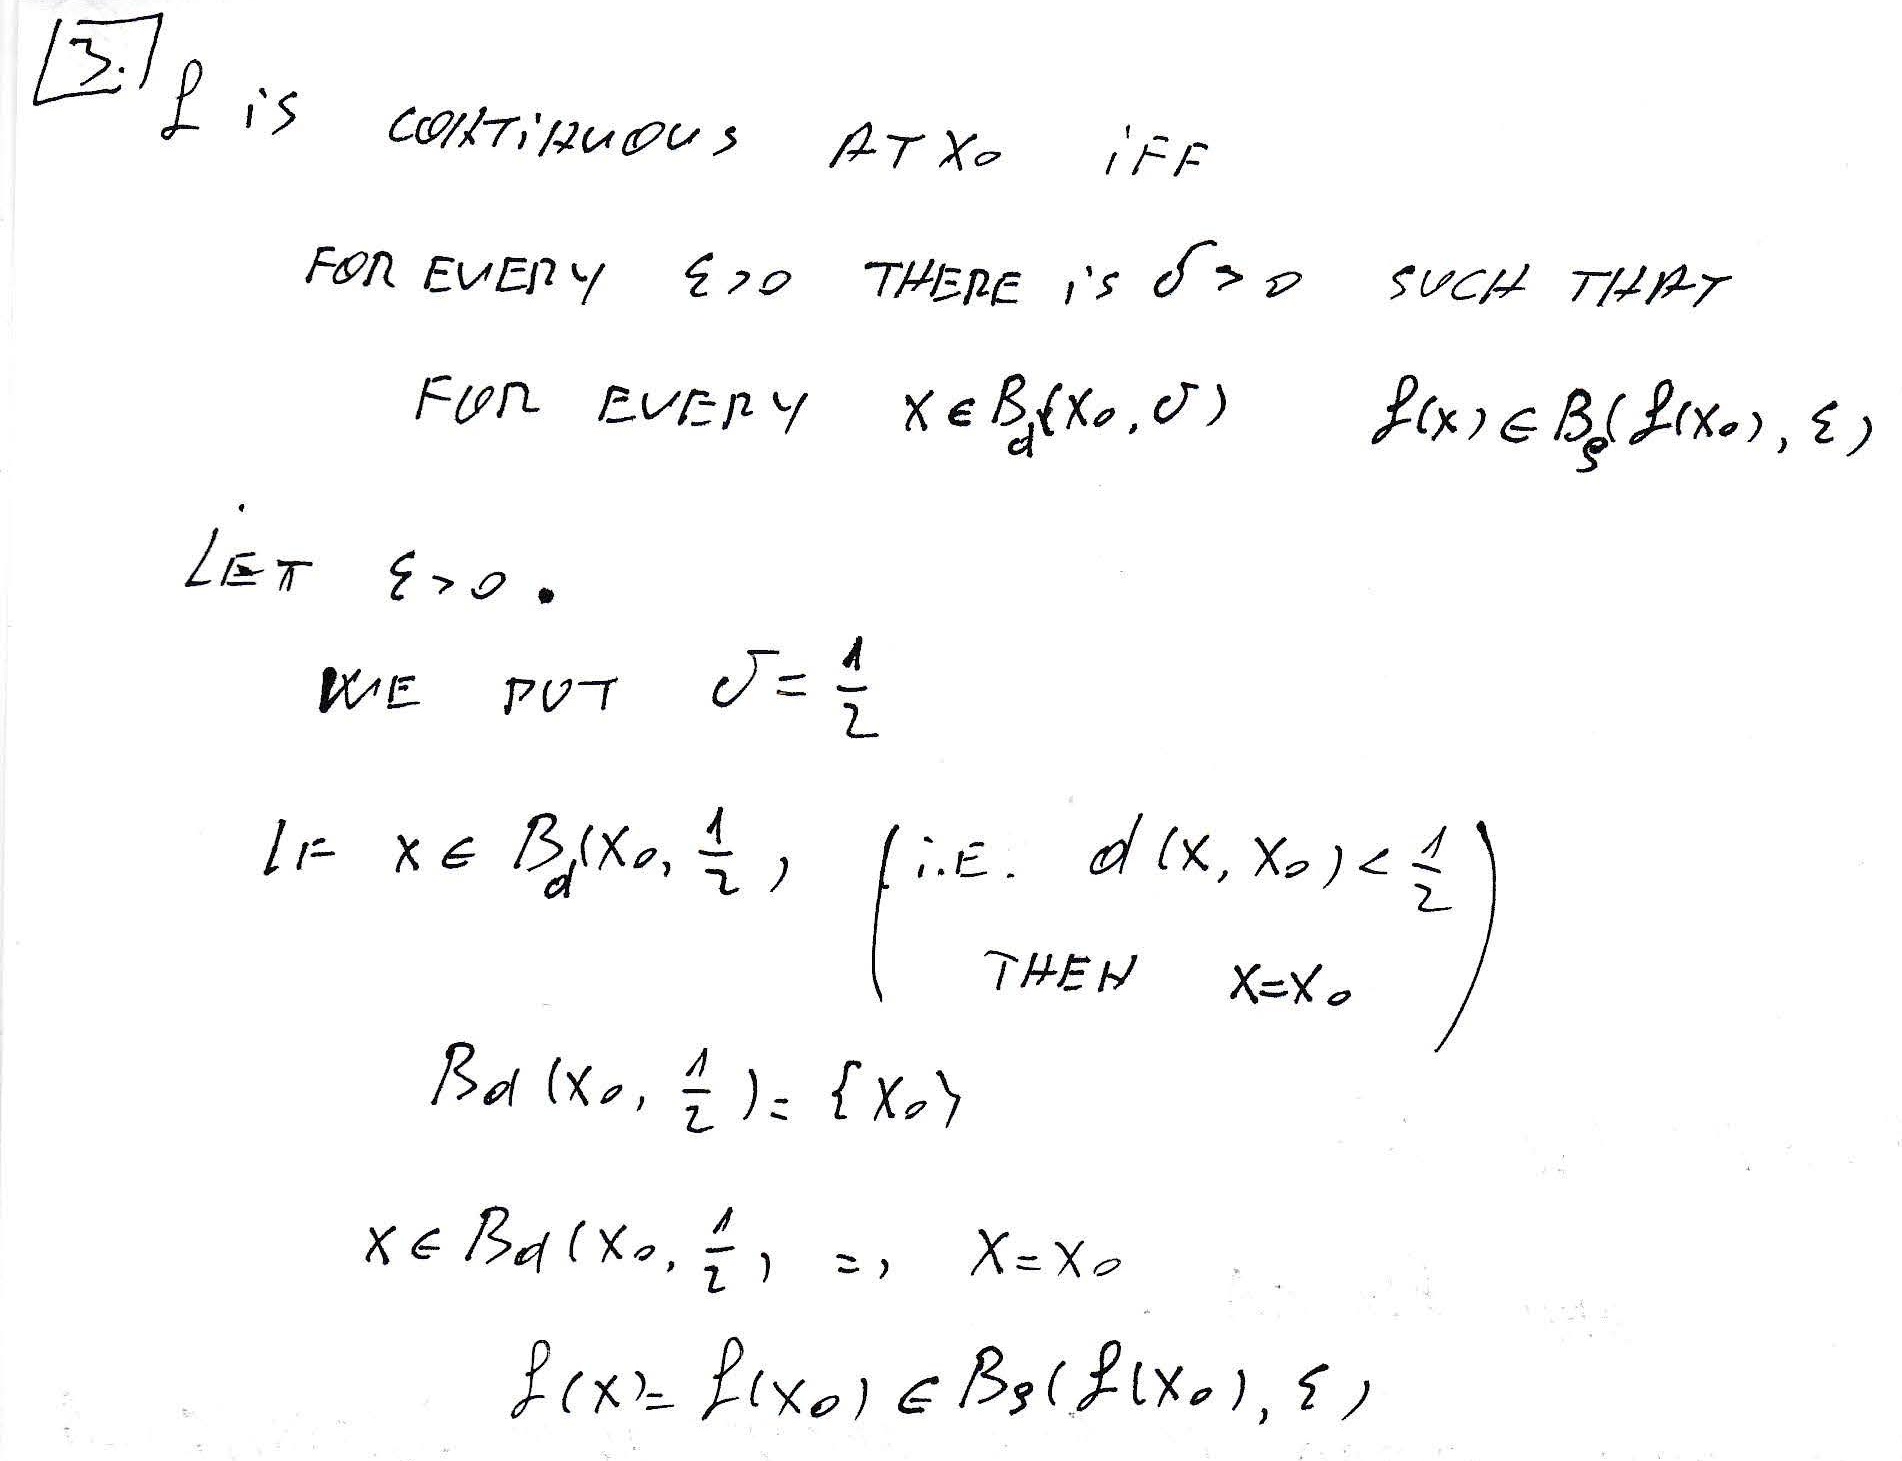 3.
f is CONTINUOUS AT X₀ iFF
FOR EVERY ε>0 THERE is δ>0 SUCH THAT
FOR EVERY X∈B_d(X₀,δ) f(x)∈B_ρ(f(X₀),ε)
LET ε>0.
WE PUT δ=1/2
IF X∈B_d(X₀,1/2) (i.E. d(X,X₀)<1/2
THEN X=X₀)
B_d(X₀,1/2)={X₀}
X∈B_d(X₀,1/2) => X=X₀
f(X)=f(X₀)∈B_ρ(f(X₀),ε)